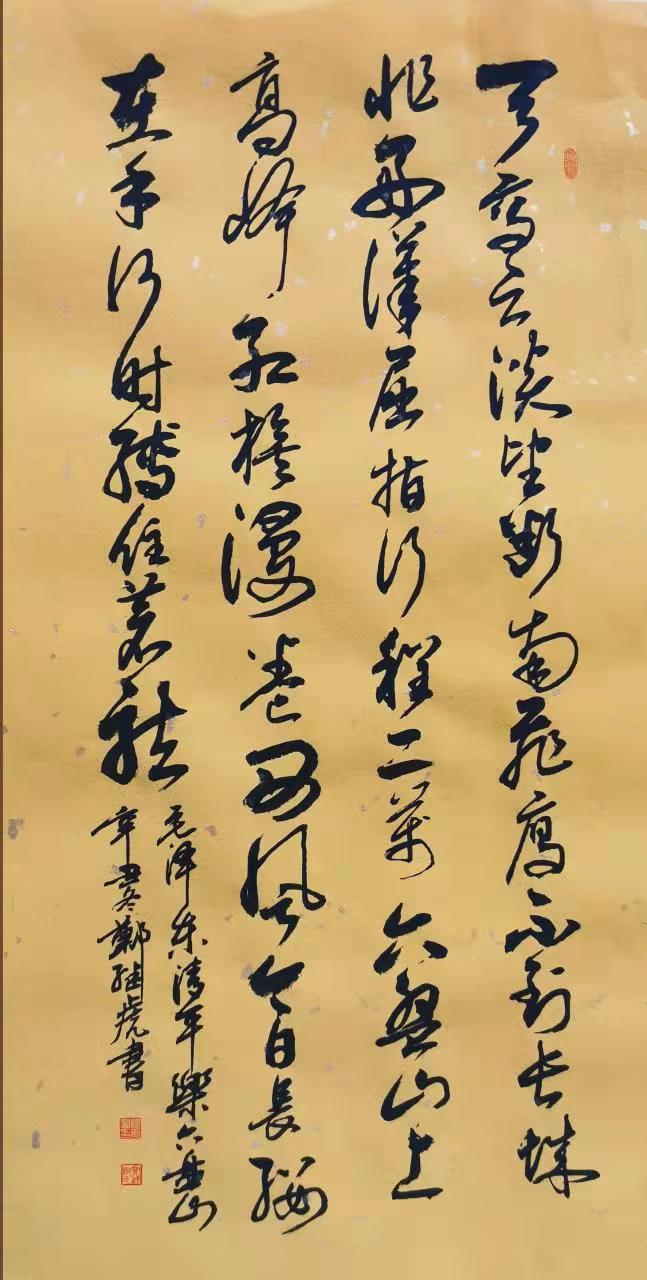 天高云淡望断南飞雁不到长城
非好汉屈指行程二萬六盘山上
高峰红旗漫卷西风今日長缨
在手何时缚住苍龙
毛泽东清平樂六盘山
辛丑冬鄭书